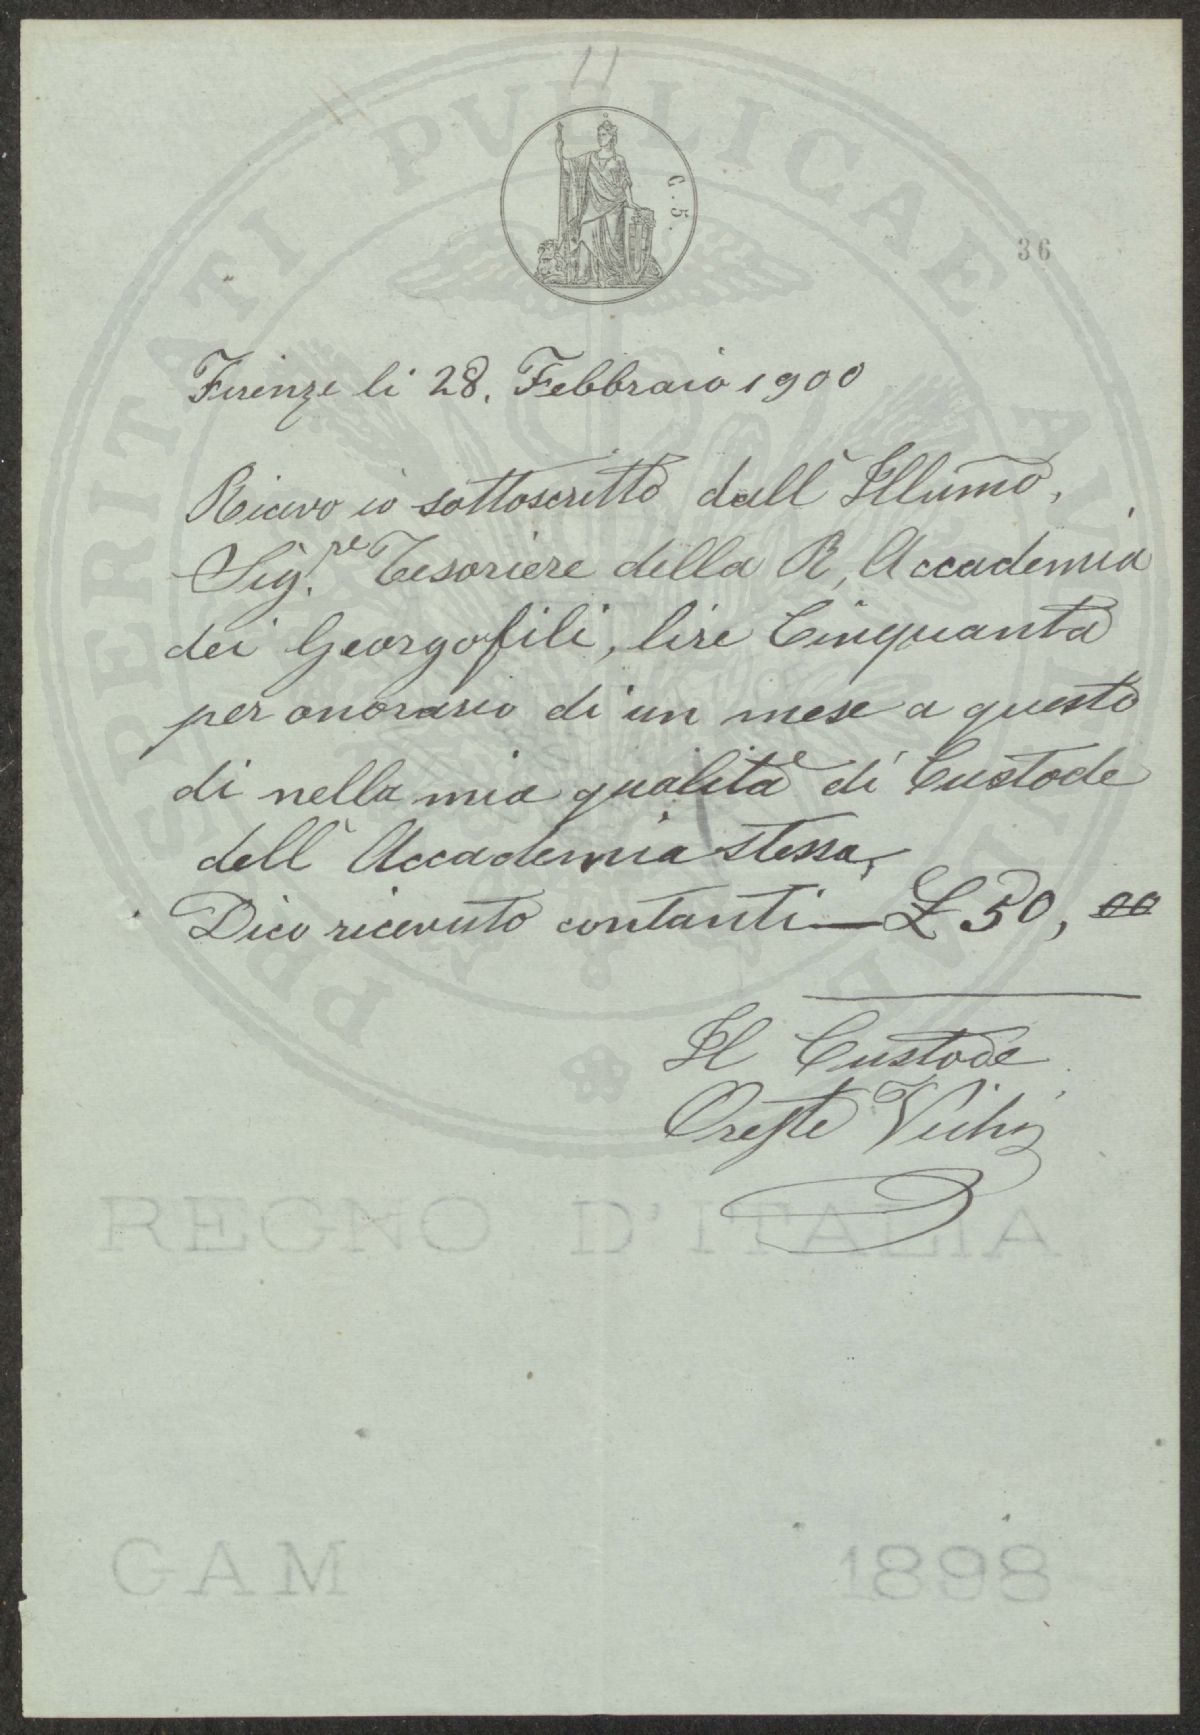 11
C. 5.
36
PROSPERITATI PVBLICAE AVGENDAE
Firenze li 28. Febbraio 1900
Ricevo io sottoscritto dall' Illumo,
Sig.re Tesoriere della R, Accademia
dei Georgofili, lire Cinquanta
per onorario di un mese a questo
di nella mia qualità di Custode
dell' Accademia stessa,
Dico ricevuto contanti — £ 50, 00
Il Custode
Oreste Vichi
REGNO D'ITALIA
GAM 1898